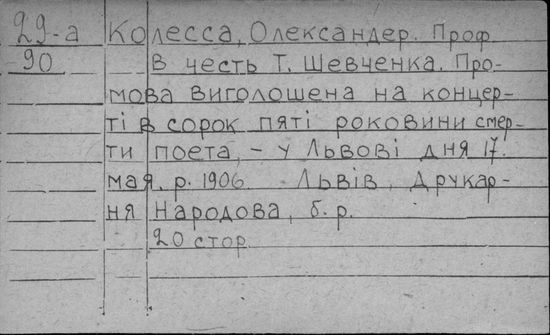 29-а Колесса, Олександер. Проф
90 В честь Т. Шевченка. Про-
мова виголошена на концер-
ті в сорок пяті роковини смер-
ти поета, – у Львові дня 17.
мая, р. 1906 Львів, Друкар-
ня Народова, б. р.
20 стор